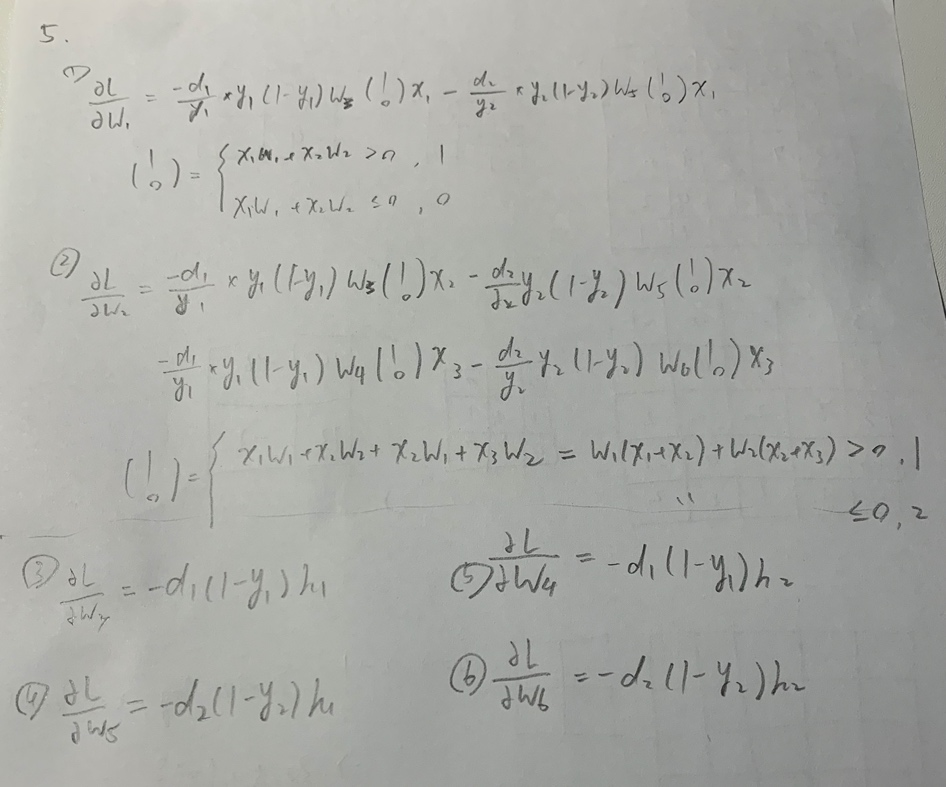 5.
① ∂L/∂W₁ = -d₁/y₁ * y₁(1-y₁) W₃ (1/0) x₁ - d₂/y₂ * y₂(1-y₂) W₅ (1/0) x₁
(1/0) = { x₁W₁ + x₂W₂ > 0 , 1
x₁W₁ + x₂W₂ ≤ 0 , 0
② ∂L/∂W₂ = -d₁/y₁ × y₁(1-y₁) W₃ (1/0) x₂ - d₂/y₂ y₂(1-y₂) W₅ (1/0) x₂
-d₁/y₁ * y₁(1-y₁) W₄ (1/0) x₃ - d₂/y₂ y₂(1-y₂) W₆ (1/0) x₃
(1/0) = { x₁W₁ + x₂W₂ + x₂W₁ + x₃W₂ = W₁(x₁+x₂) + W₂(x₂+x₃) > 0 , 1
" ≤ 0 , 2
③ ∂L/∂W₃ = -d₁(1-y₁) h₁
⑤ ∂L/∂W₄ = -d₁(1-y₁) h₂
④ ∂L/∂W₅ = -d₂(1-y₂) h₁
⑥ ∂L/∂W₆ = -d₂(1-y₂) h₂